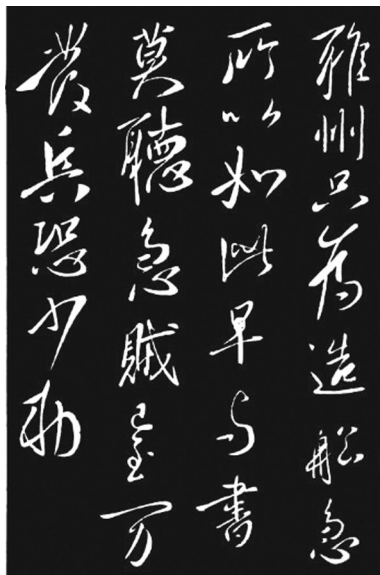 雅州只為造船急
所以如此早与書
莫聽急賊万
發兵恐少勅